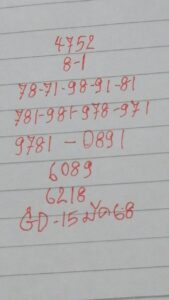 4752
8-1
78-71-98-91-81
781-981-978-971
9781-0891
6089
6218
GD-15 มีค 68